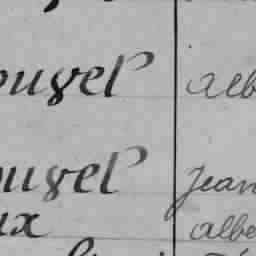 ouzel alb
ouzel Jean
ux albe